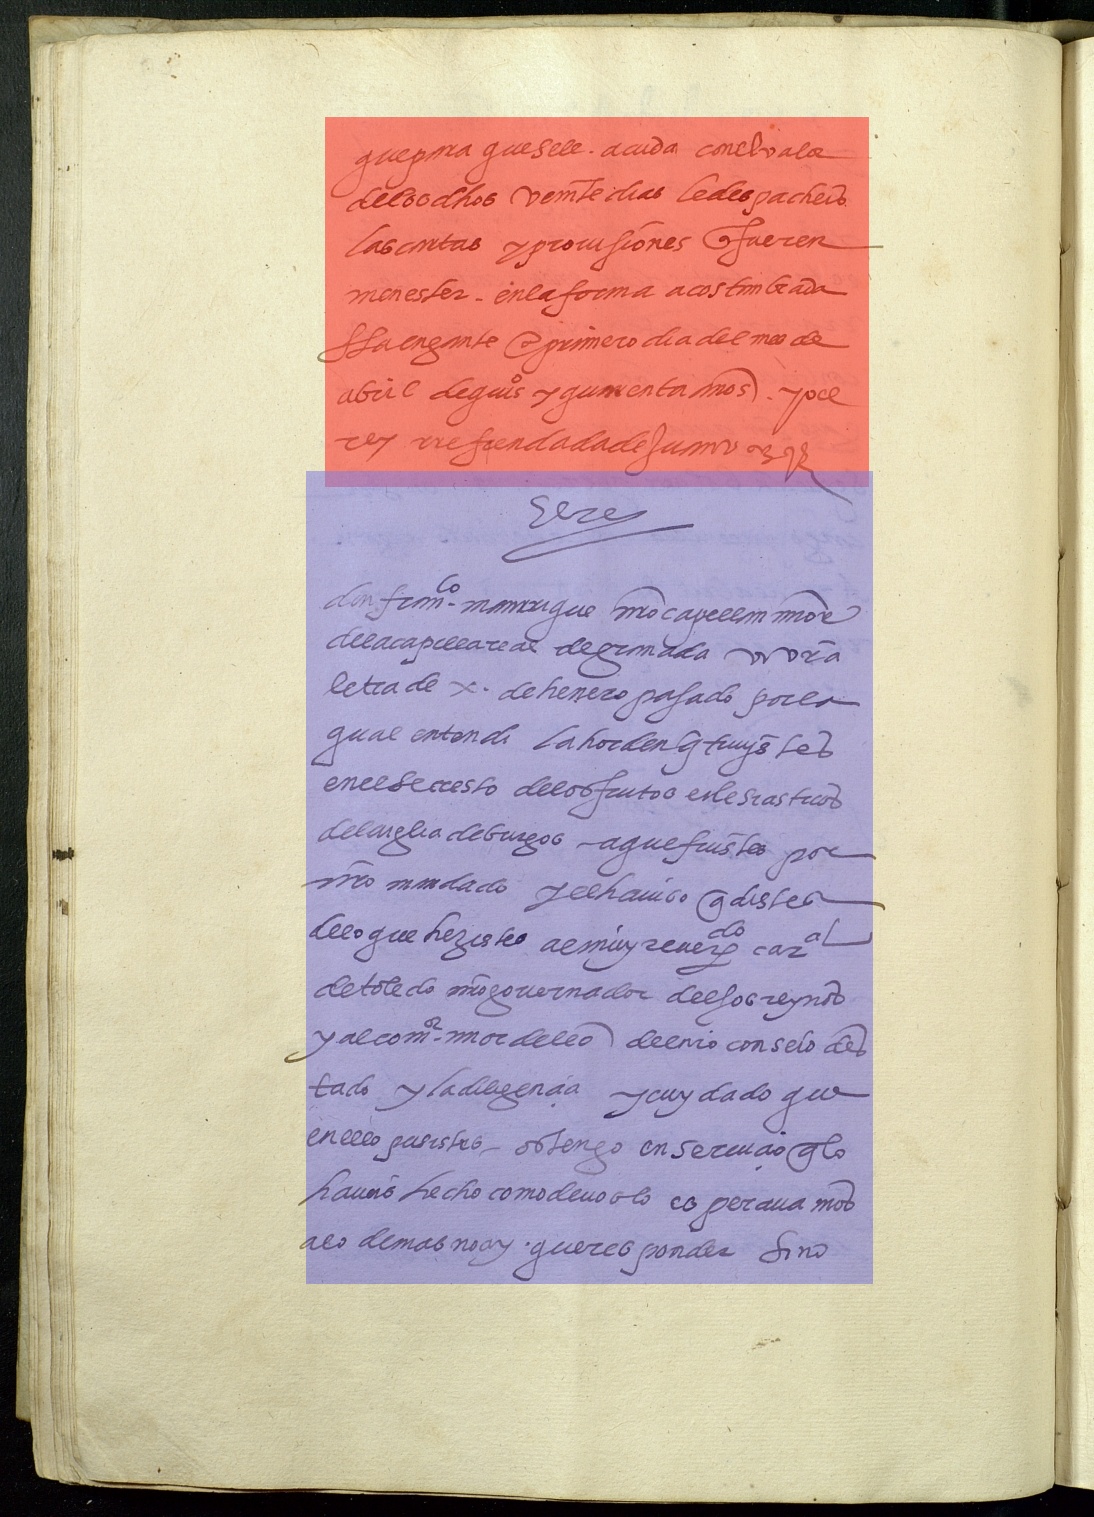 que para que se le acuda con el vale
de los dhos veinte dias le despacheis
las cartas y provisiones q fueren
menester en la forma acostumbrada
ffa en gante a primero dia del mes de
abril de quis y quarenta años yo el
rey refrendada de Juan
El rey
don franco manrique nro capellan mor
de la capilla real de granada vi vra
letra de x de henero pasado por la
qual entendi la horden q tuvistes
en el secresto de los frutos eclesiasticos
de la iglia de burgos a que fuistes por
nro mandado y el haviso q distes
de lo que hezistes al muy reverdo caral
de toledo nro governador dessos reynos
y al comor mor de leon del nro consejo des
tado y la diligencia y cuydado que
en ello pusistes os tengo en servicio q lo
haveis hecho como de vos lo esperavamos
a lo demas no ay que responder sino